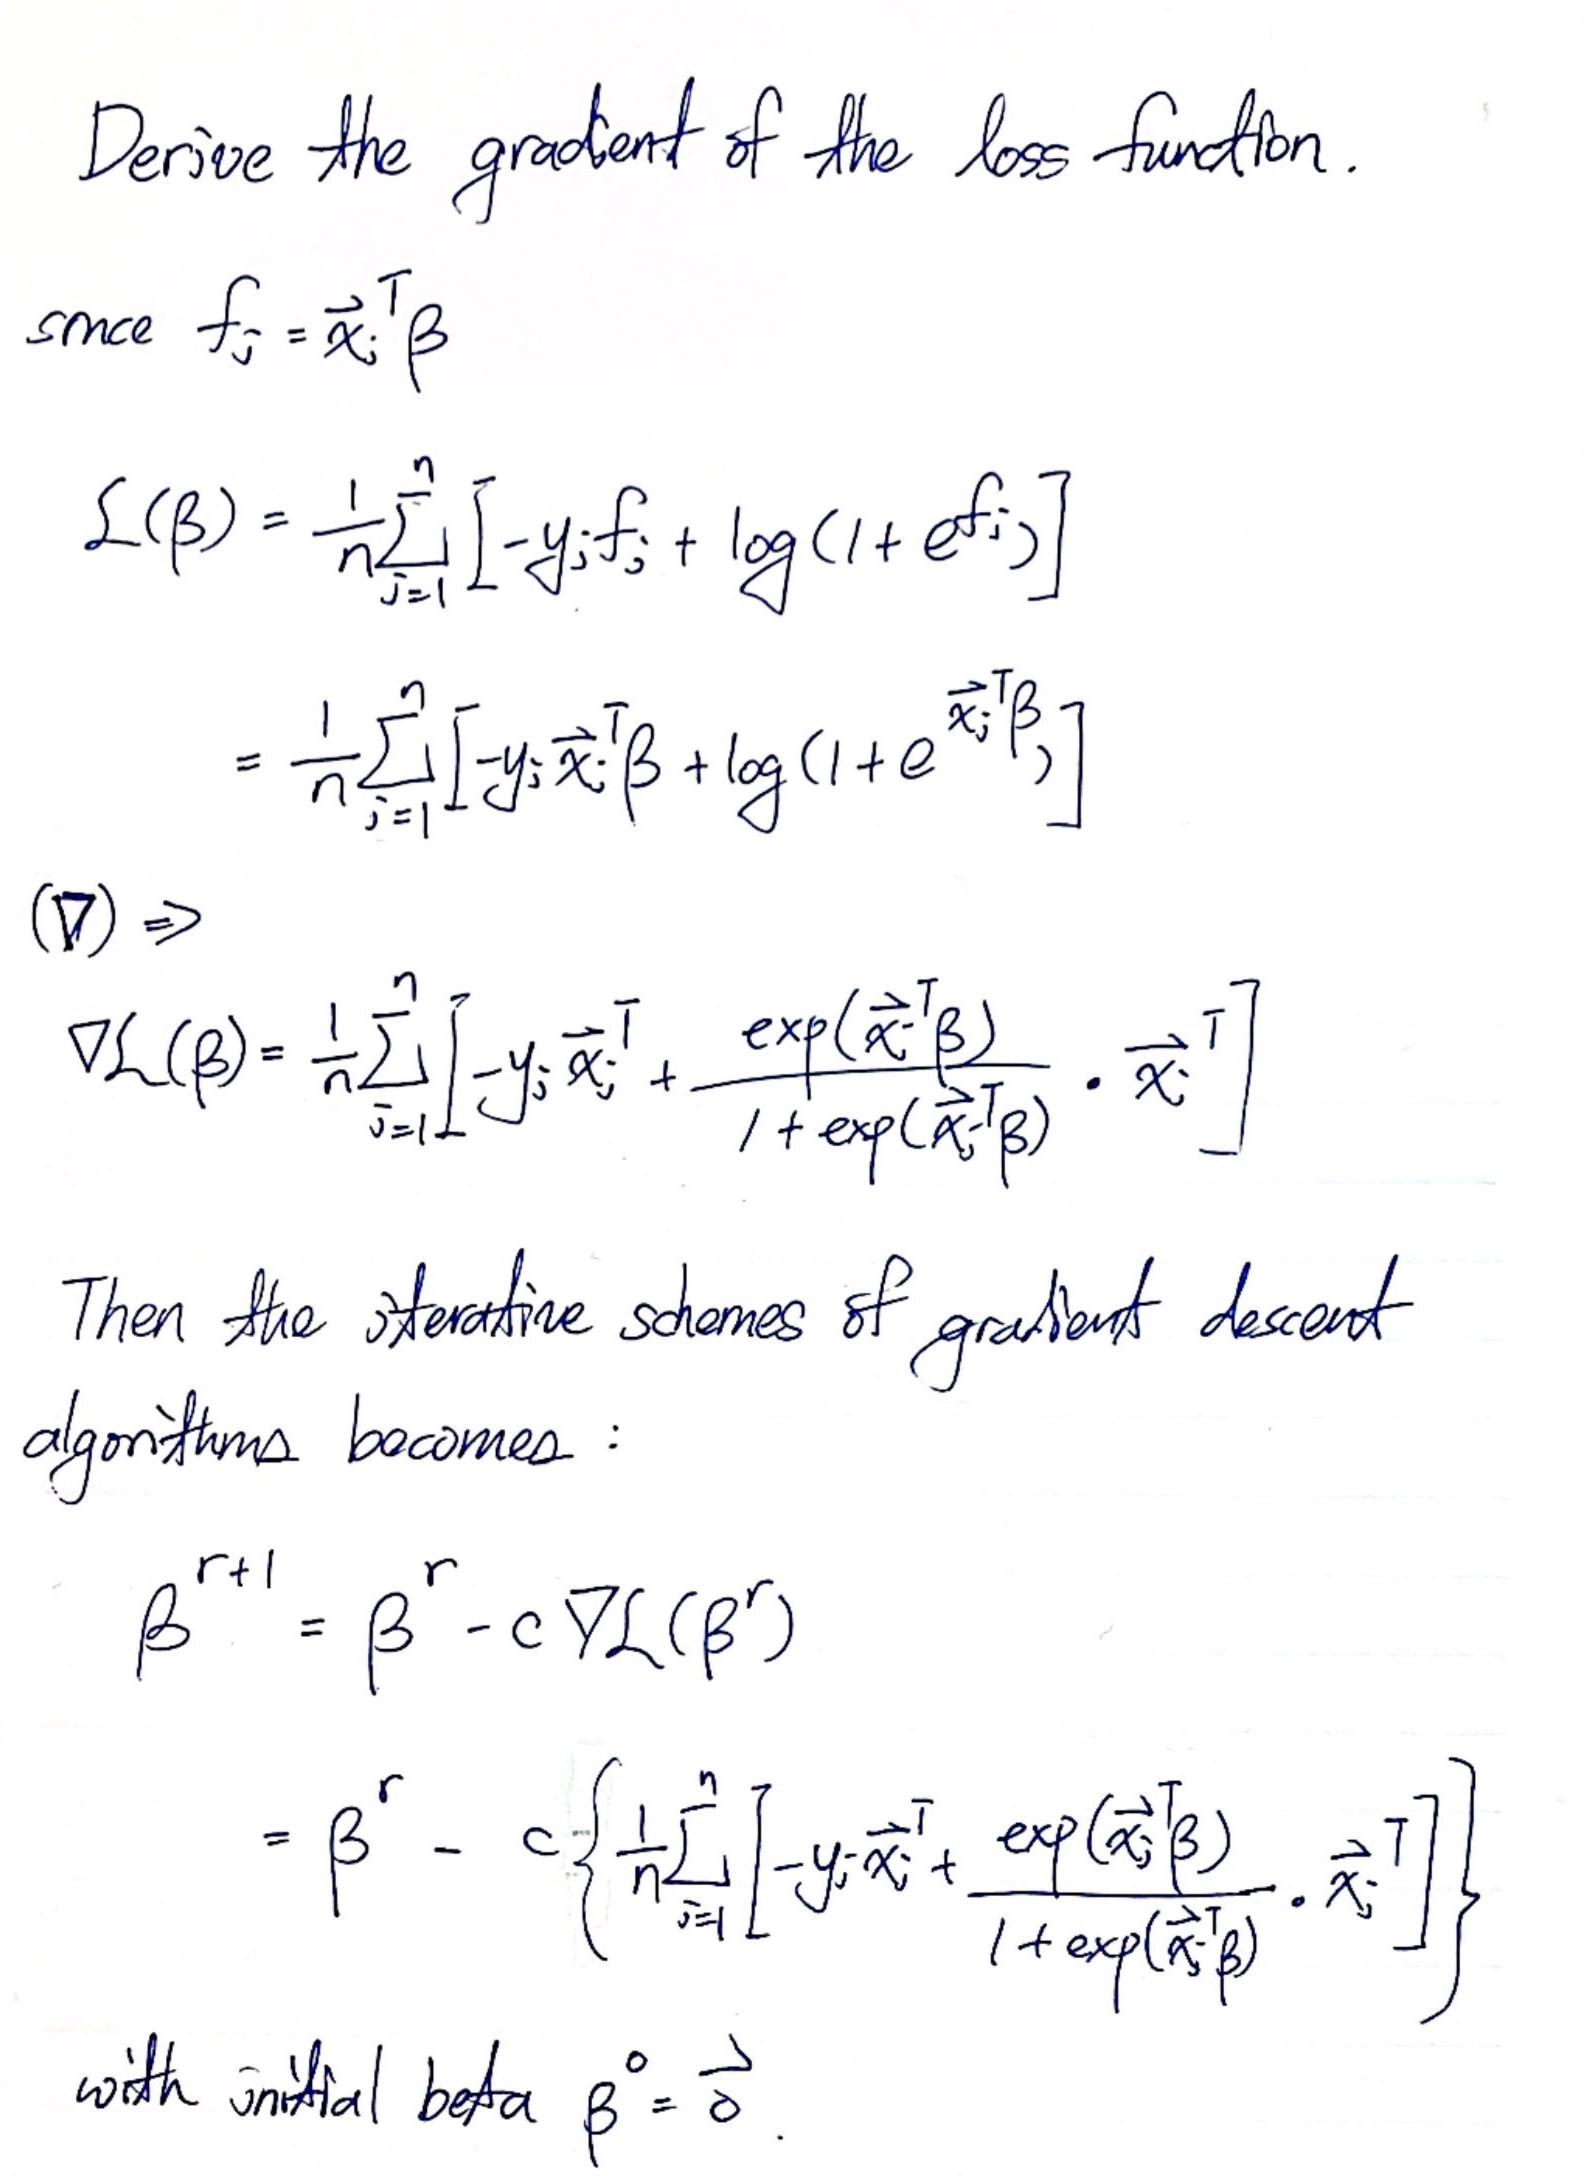 Derive the gradient of the loss function.
since f_j = \vec{x}_j^T β
L(β) = \frac{1}{n} \sum_{j=1}^{n} [-y_j f_j + log(1 + e^{f_j})]
= \frac{1}{n} \sum_{j=1}^{n} [-y_j \vec{x}_j^T β + log(1 + e^{\vec{x}_j^T β})]
(∇) ⇒
∇L(β) = \frac{1}{n} \sum_{j=1}^{n} [-y_j \vec{x}_j^T + \frac{exp(\vec{x}_j^T β)}{1 + exp(\vec{x}_j^T β)} · \vec{x}_j^T]
Then the iterative schemes of gradient descent
algorithms becomes :
β^{r+1} = β^r - c ∇L(β^r)
= β^r - c \{\frac{1}{n} \sum_{j=1}^{n} [-y_j \vec{x}_j^T + \frac{exp(\vec{x}_j^T β)}{1 + exp(\vec{x}_j^T β)} · \vec{x}_j^T]\}
with initial beta β^0 = \vec{0}.